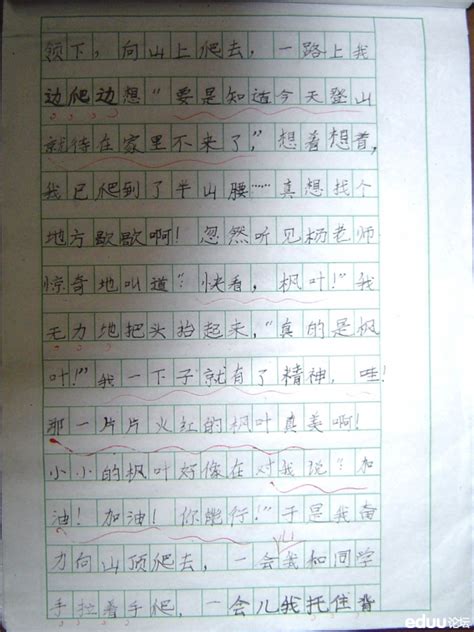 领下，向山上爬去，一路上我
边爬边想“要是知道今天登山
就待在家里不来了，”想着想着，
我已爬到了半山腰……真想找个
地方歇歇啊！忽然听见杨老师
惊奇地叫道：“快看，枫叶！”我
无力地把头抬起来，“真的是枫
叶！”我一下子就有了精神，哇！
那一片片火红的枫叶真美啊！
小小的枫叶好像在对我说：“加
油！加油！你能行！”于是我奋
力向山顶爬去，一会我和同学
手拉着手爬，一会儿我托住背
eduu论坛